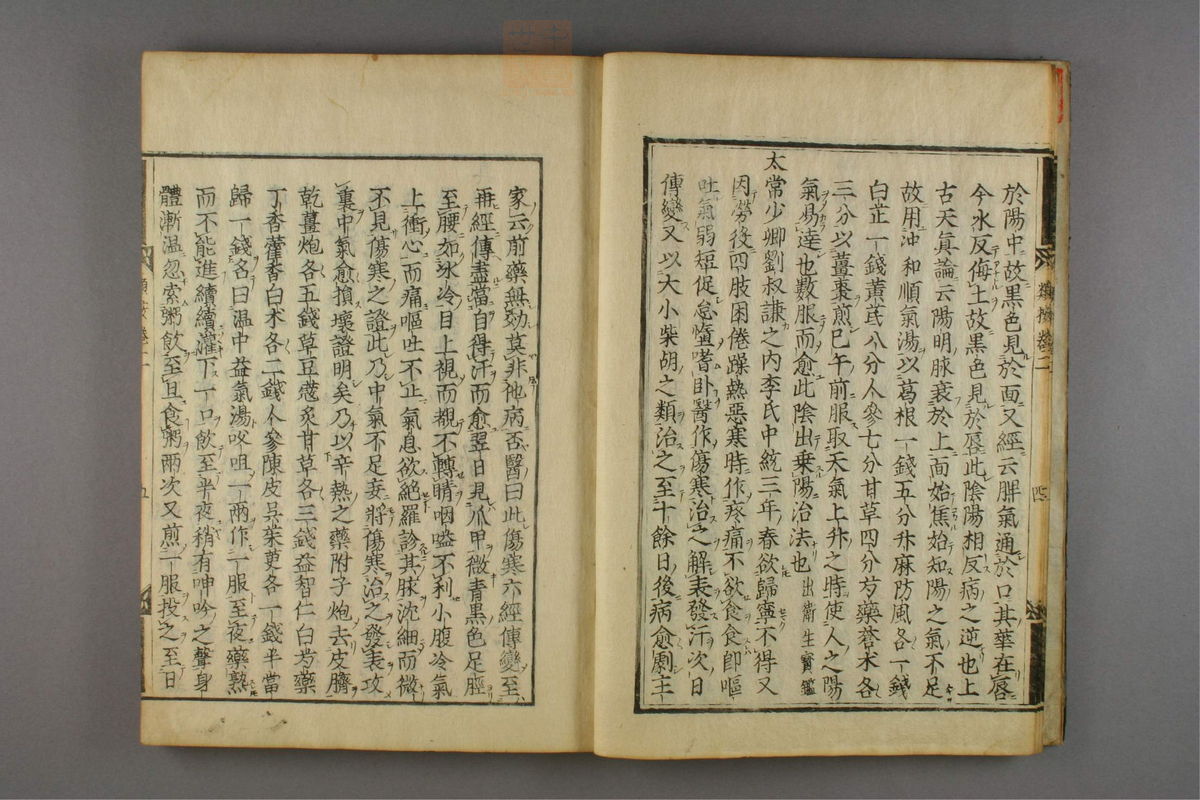 於陽中故黒色見於面又經云脾氣通於口其華在唇
今水反侮土故黒色見於唇此陰陽相反病之逆也上
古天眞論云陽明脉衰於上面始焦始知陽之氣不足
故用冲和順氣湯以葛根一錢五分升麻防風各一錢
白芷一錢黄芪八分人參七分甘草四分芍藥蒼朮各
三分以薑棗煎巳午前服取天氣上升之時使人之陽
氣易達也數服而愈此陰出乗陽治法也出衛生寳鑑
太常少卿劉叔謙之内李氏中統三年春欲歸寧不得又
因勞役四肢困倦躁熱惡寒時作疼痛不欲食食即嘔
吐氣弱短促怠惰嗜卧醫作傷寒治之解表發汗次日
傳變又以大小柴胡之類治之至十餘日後病愈劇主
家云前藥無効莫非他病否醫曰此傷寒六經傳變至
再經傳盡當自得汗而愈翌日見爪甲微青黒色足脛
至腰如冰冷目上視而覩不轉睛咽嗌不利小腹冷氣
上衝心而痛嘔吐不止氣息欲絶羅診其脉沈細而微
不見傷寒之證此乃中氣不足妄將傷寒治之發表攻
裏中氣愈損壞證明矣乃以辛熱之藥附子炮去皮臍
乾薑炮各五錢草豆蔲炙甘草各三錢益智仁白芍藥
丁香藿香白朮各二錢人參陳皮吴茱萸各一錢半當
歸一錢名曰温中益氣湯㕮咀一兩作一服至夜藥熟
而不能進續續灌下一口飲至半夜稍有呻吟之聲身
體漸温忽索粥飲至旦食粥兩次又煎一服投之至日
類按卷二
四
五